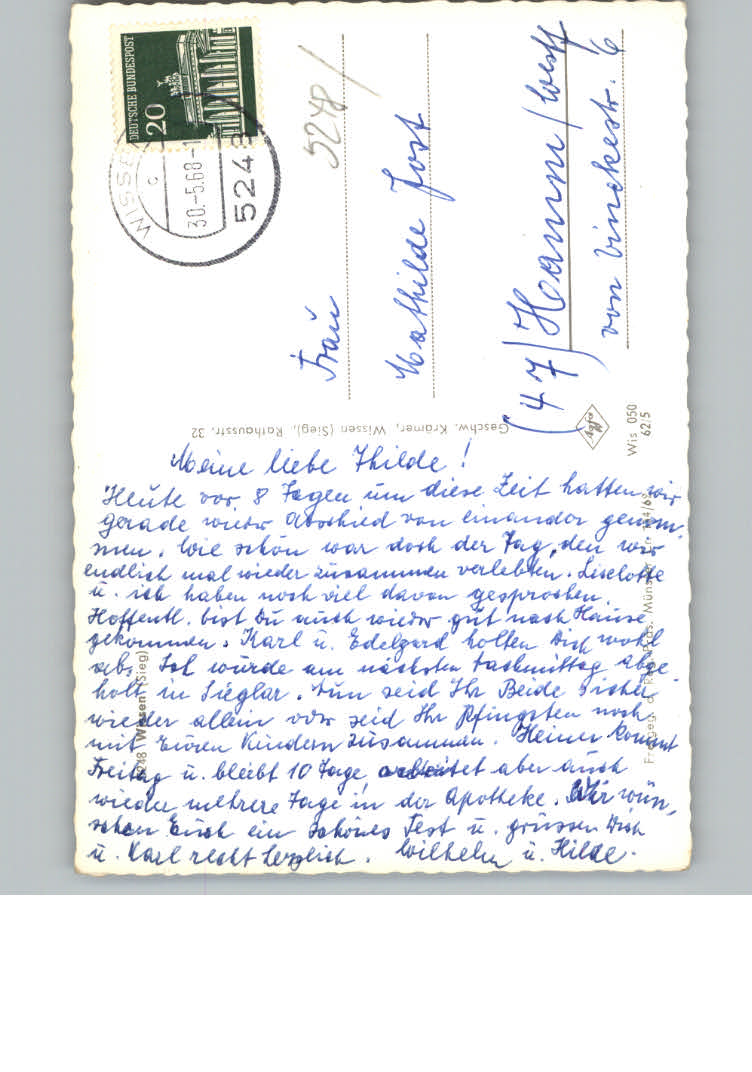 DEUTSCHE BUNDESPOST
20
WISSEN
c
30.-5.68-1
5248
5248
Frau
Mathilde Jost
(47) Hamm/Westf
von Vinckestr. 6
Geschw. Krämer, Wissen (Sieg), Rathausstr. 32
Agfa
Wis 050
62/5
5248 Wissen (Sieg)
Freigeg. d. Reg. Präs. Münster
Meine liebe Thilde!
Heute vor 8 Tagen um diese Zeit hatten wir
gerade wieder Abschied von einander genom-
men. Wie schön war doch der Tag, den wir
endlich mal wieder zusammen verlebten. Liselotte
u. ich haben noch viel davon gesprochen.
Hoffentl. bist Du auch wieder gut nach Hause
gekommen. Karl u. Edelgard holten Dich wohl
ab. Ich wurde am nächsten Nachmittag abge-
holt in Sieglar. Nun seid Ihr Beide sicher
wieder allein oder seid Ihr Pfingsten noch
mit Euren Kindern zusammen. Heiner kommt
Freitag u. bleibt 10 Tage, arbeitet aber auch
wieder mehrere Tage in der Apotheke. Wir wün-
schen Euch ein schönes Fest u. grüssen Dich
u. Karl recht herzlich. Wilhelm u. Hilde.